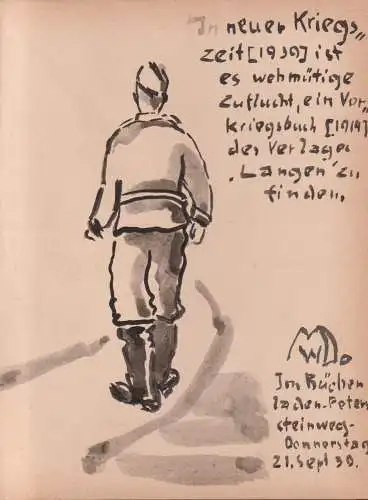 In neuer Kriegs„
zeit [1939] ist
es wehmütige
Zuflucht, ein Vor„
kriegsbuch [1914]
des Verlages
„Langen" zu
finden.
MWD.
Im Bücher
laden-Peters
steinweg-
Donnerstag
21. Sept 39.